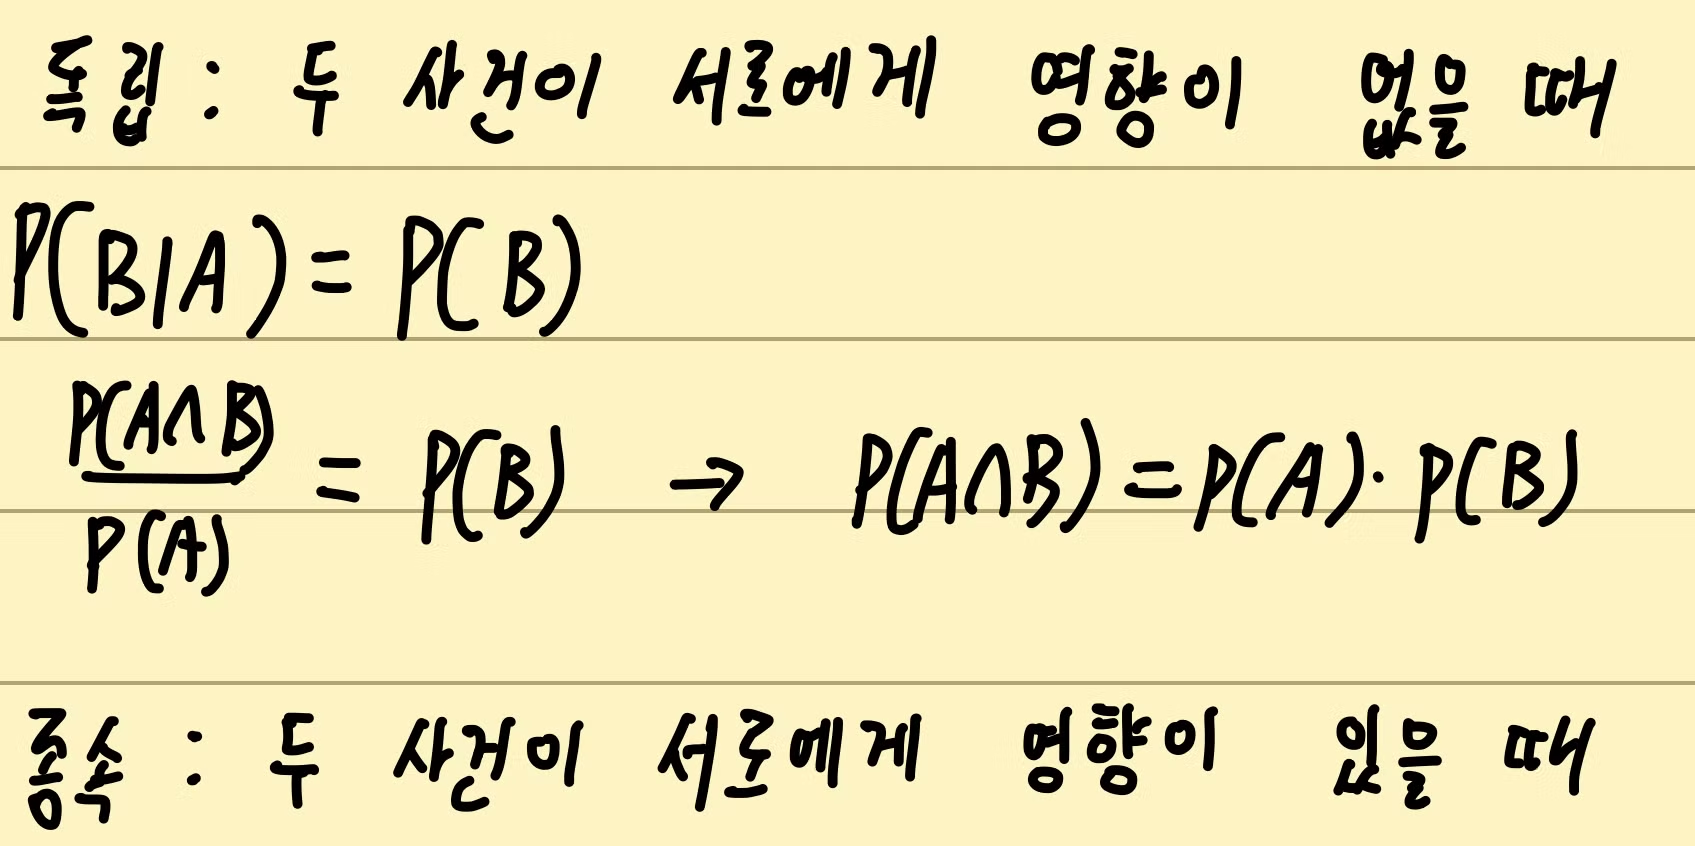 독립 : 두 사건이 서로에게 영향이 없을 때
P(B|A) = P(B)
P(A∩B)/P(A) = P(B) → P(A∩B) = P(A)·P(B)
종속 : 두 사건이 서로에게 영향이 있을 때